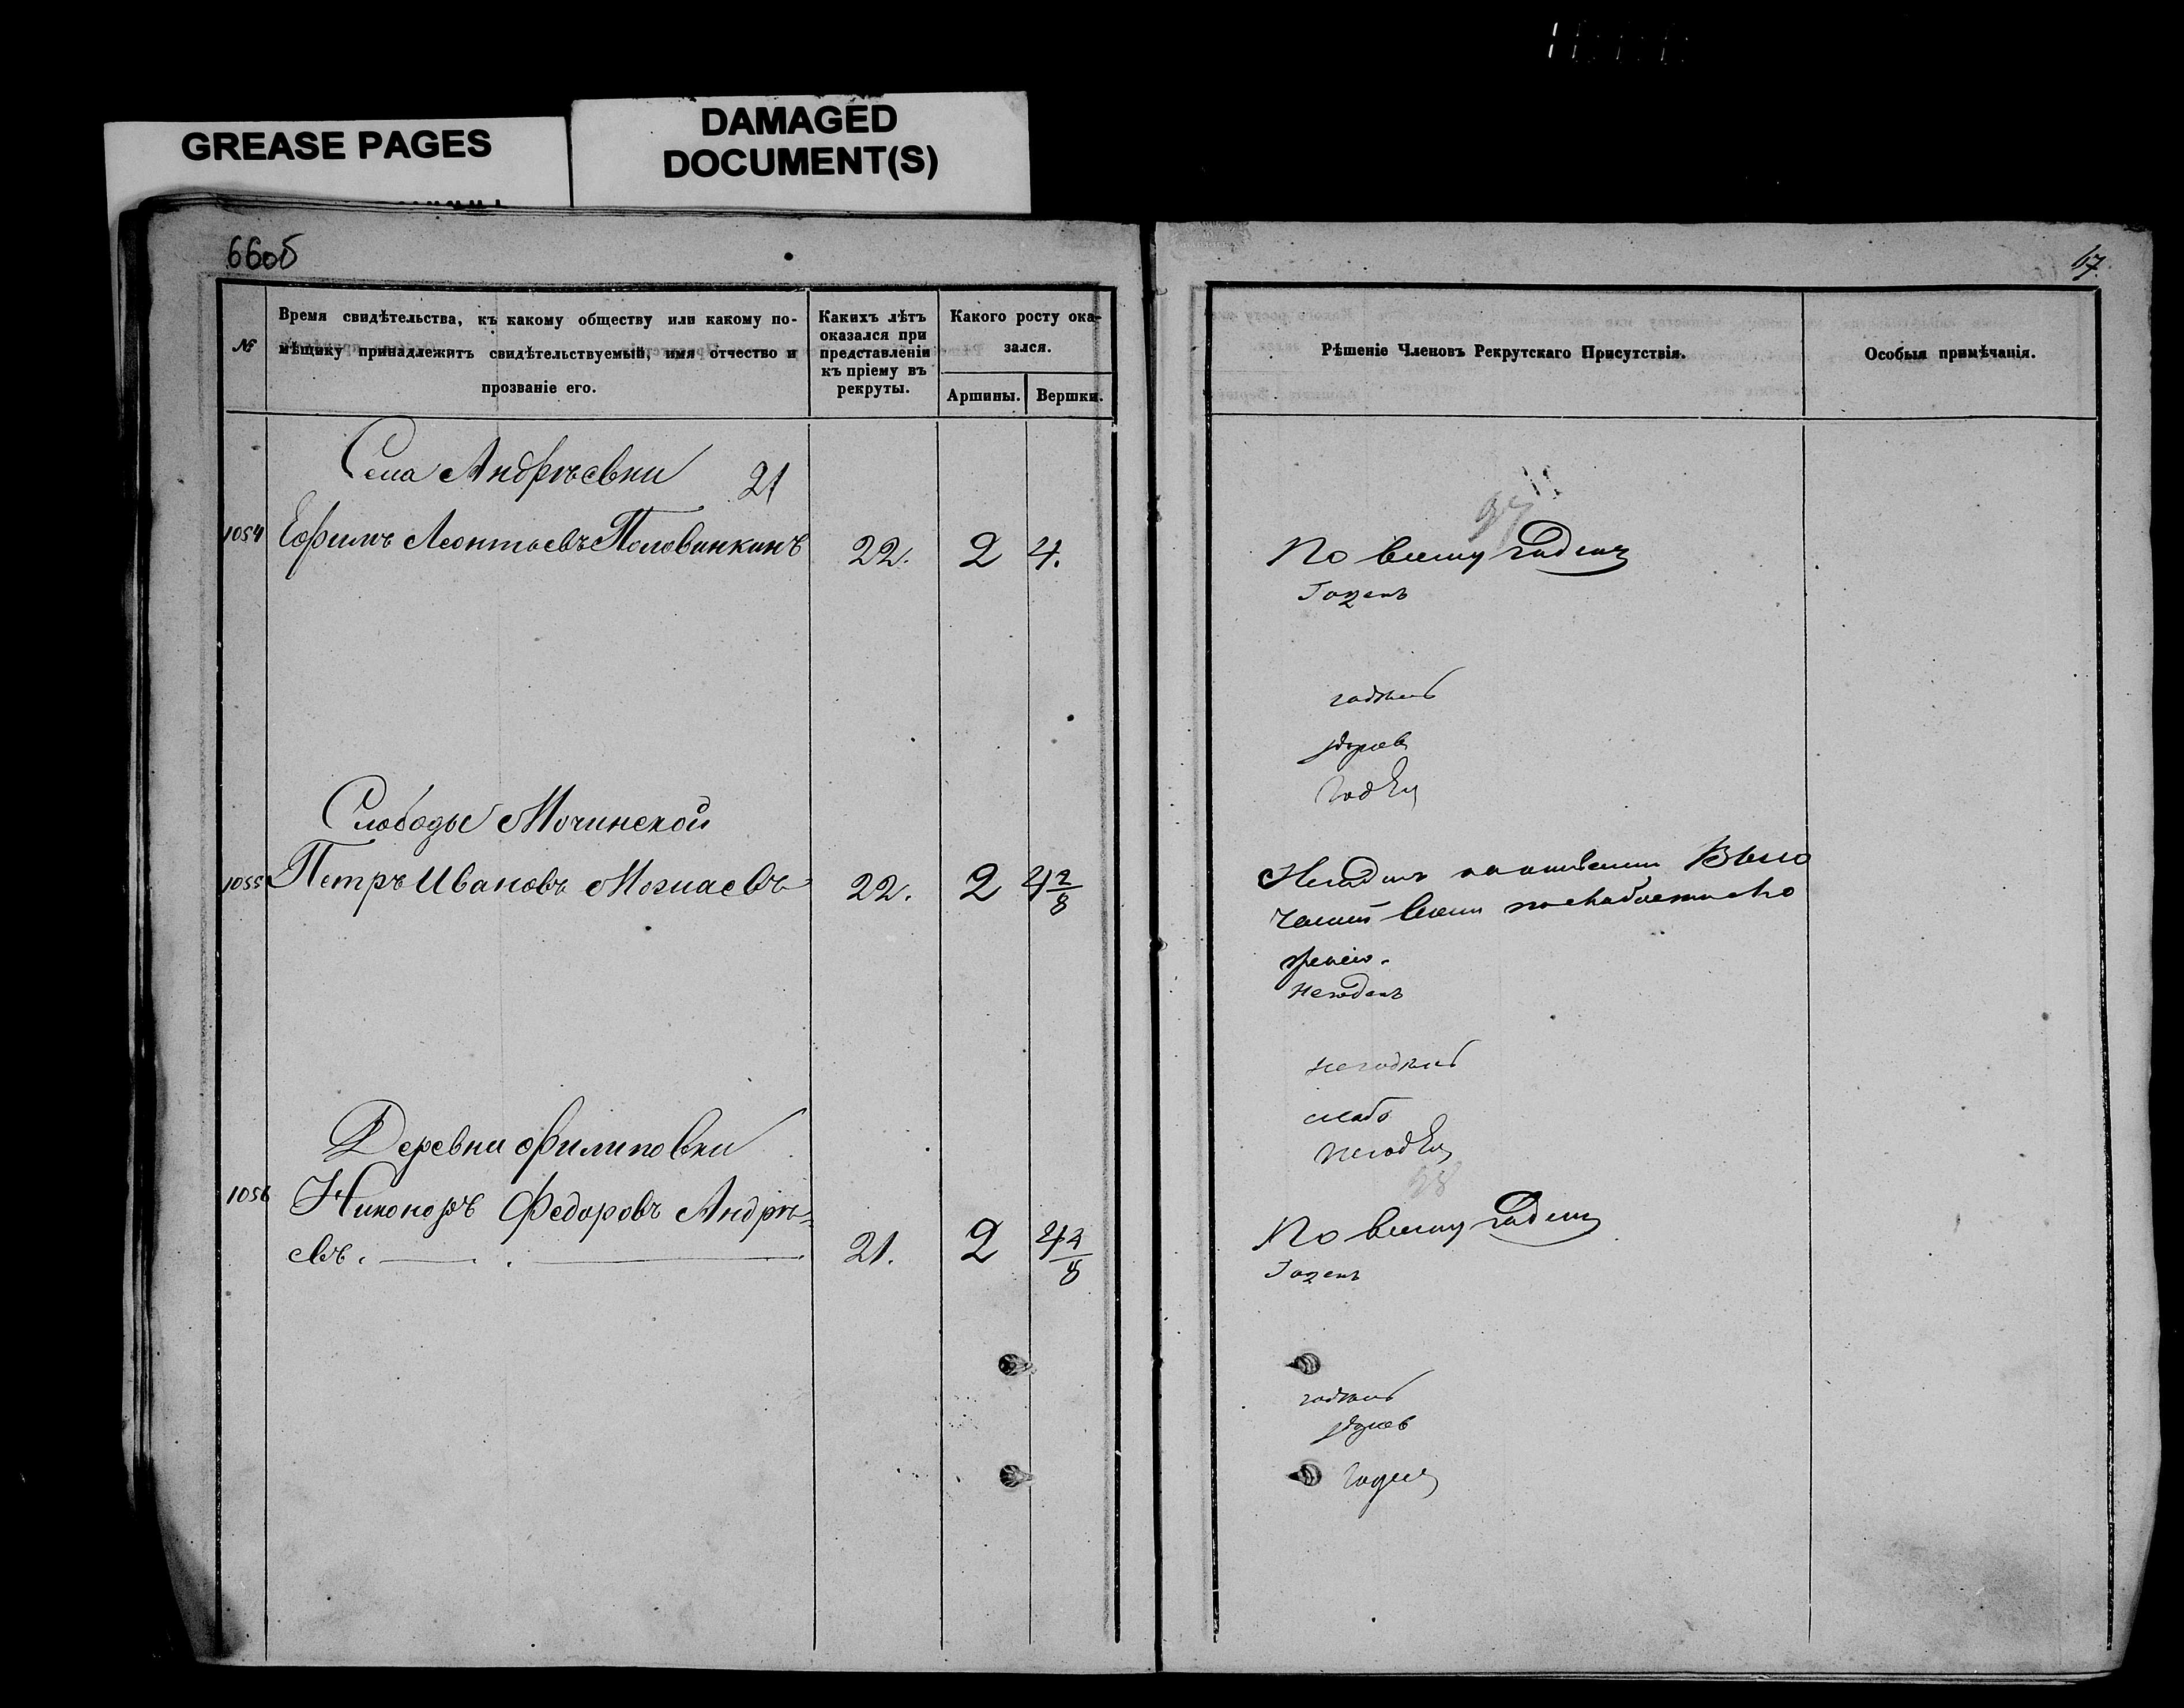 GREASE PAGES
DAMAGED
DOCUMENT(S)
66об
67
№
Время свидѣтельства, къ какому обществу или какому по-
мѣщику принадлежитъ свидѣтельствуемый, имя отчество и
прозваніе его.
Какихъ лѣтъ
оказался при
представленіи
къ пріему въ
рекруты.
Какого росту ока-
зался.
Аршины.
Вершки.
Рѣшеніе Членовъ Рекрутскаго Присутствія.
Особыя примѣчанія.
Села Андрѣевки 21
1054 Ефимъ Леонтьевъ Половинкинъ 22. 2 4.
97
По всему годенъ
Годенъ
годенъ
здоров
Годен
Слободы Мочинской
1055 Петръ Ивановъ 22. 2 4 2/8
Негоденъ
зрѣнію.
Негоденъ
негоденъ
слабъ
негоден
98
Деревни Филиповки
1056 Никоноръ Федоровъ Андрѣ-
евъ. 21. 2 4 3/8
По всему годенъ
Годенъ
годенъ
здоров
Годен